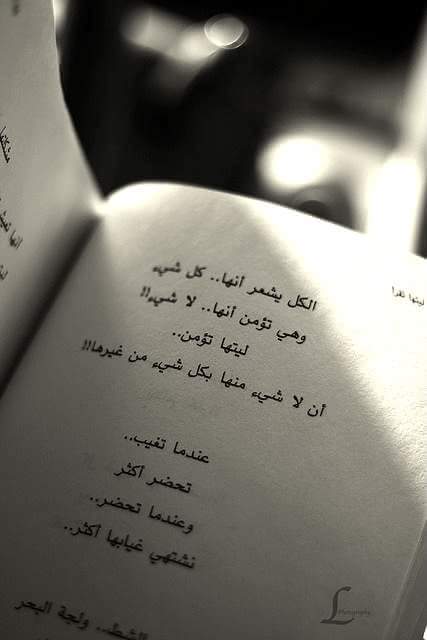 ليتها تقرأ
الكل يشعر أنها.. كل شيء
وهي تؤمن أنها.. لا شيء!!
ليتها تؤمن..
أن لا شيء منها بكل شيء من غيرها!!
عندما تغيب..
تحضر أكثر
وعندما تحضر..
نشتهي غيابها أكثر..
الشط.. ولجة البحر
L Photography